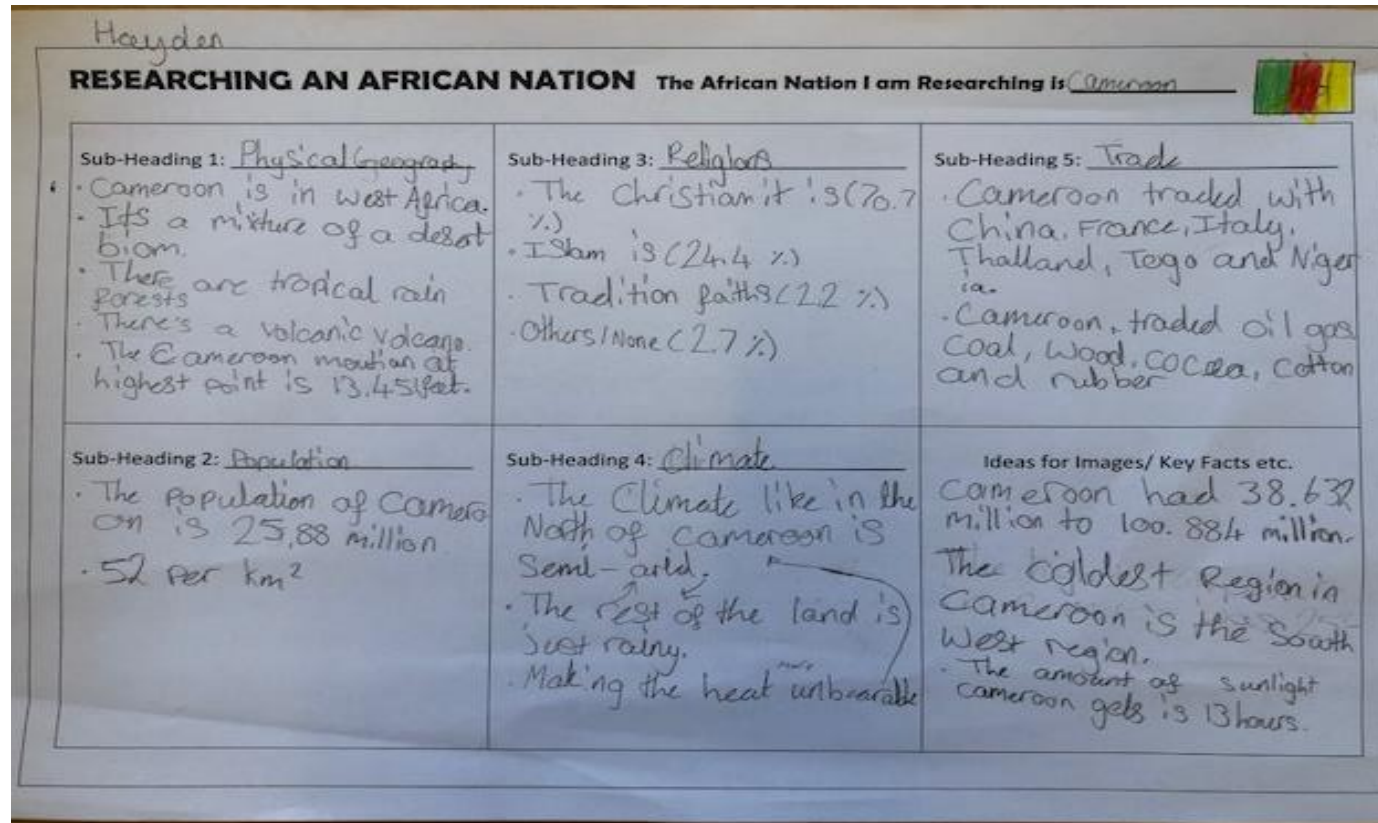 Hayden
RESEARCHING AN AFRICAN NATION The African Nation I am Researching is Cameroon
Sub-Heading 1: Physical Geography
· Cameroon is in west Africa.
· It's a mixture of a desert
biom.
· There are tropical rain
forests
· There's a volcanic volcano.
· The Cameroon moutian at
highest point is 13,451feet.
Sub-Heading 2: Population
· The population of Camero
on is 25,88 million
· 52 per km²
Sub-Heading 3: Religions
· The Christianit is (70.7
%)
· ISlam is (24.4 %)
· Tradition faiths (2.2 %)
· Others/None (2.7 %)
Sub-Heading 4: Climate
· The Climate like in the
North of Cameroon is
Semi-arid.
· The rest of the land is
just rainy.
· Making the heat more unbearable
Sub-Heading 5: Trade
· Cameroon traded with
China, France, Italy,
Thailand, Togo and Niger
ia.
· Cameroon, traded oil gas
coal, wood, cocoa, cotton
and rubber
Ideas for Images/ Key Facts etc.
Cameroon had 38.632
million to 100.884 million.
The coldest Region in
Cameroon is the South
West region.
· The amount of sunlight
cameroon gets is 13 hours.